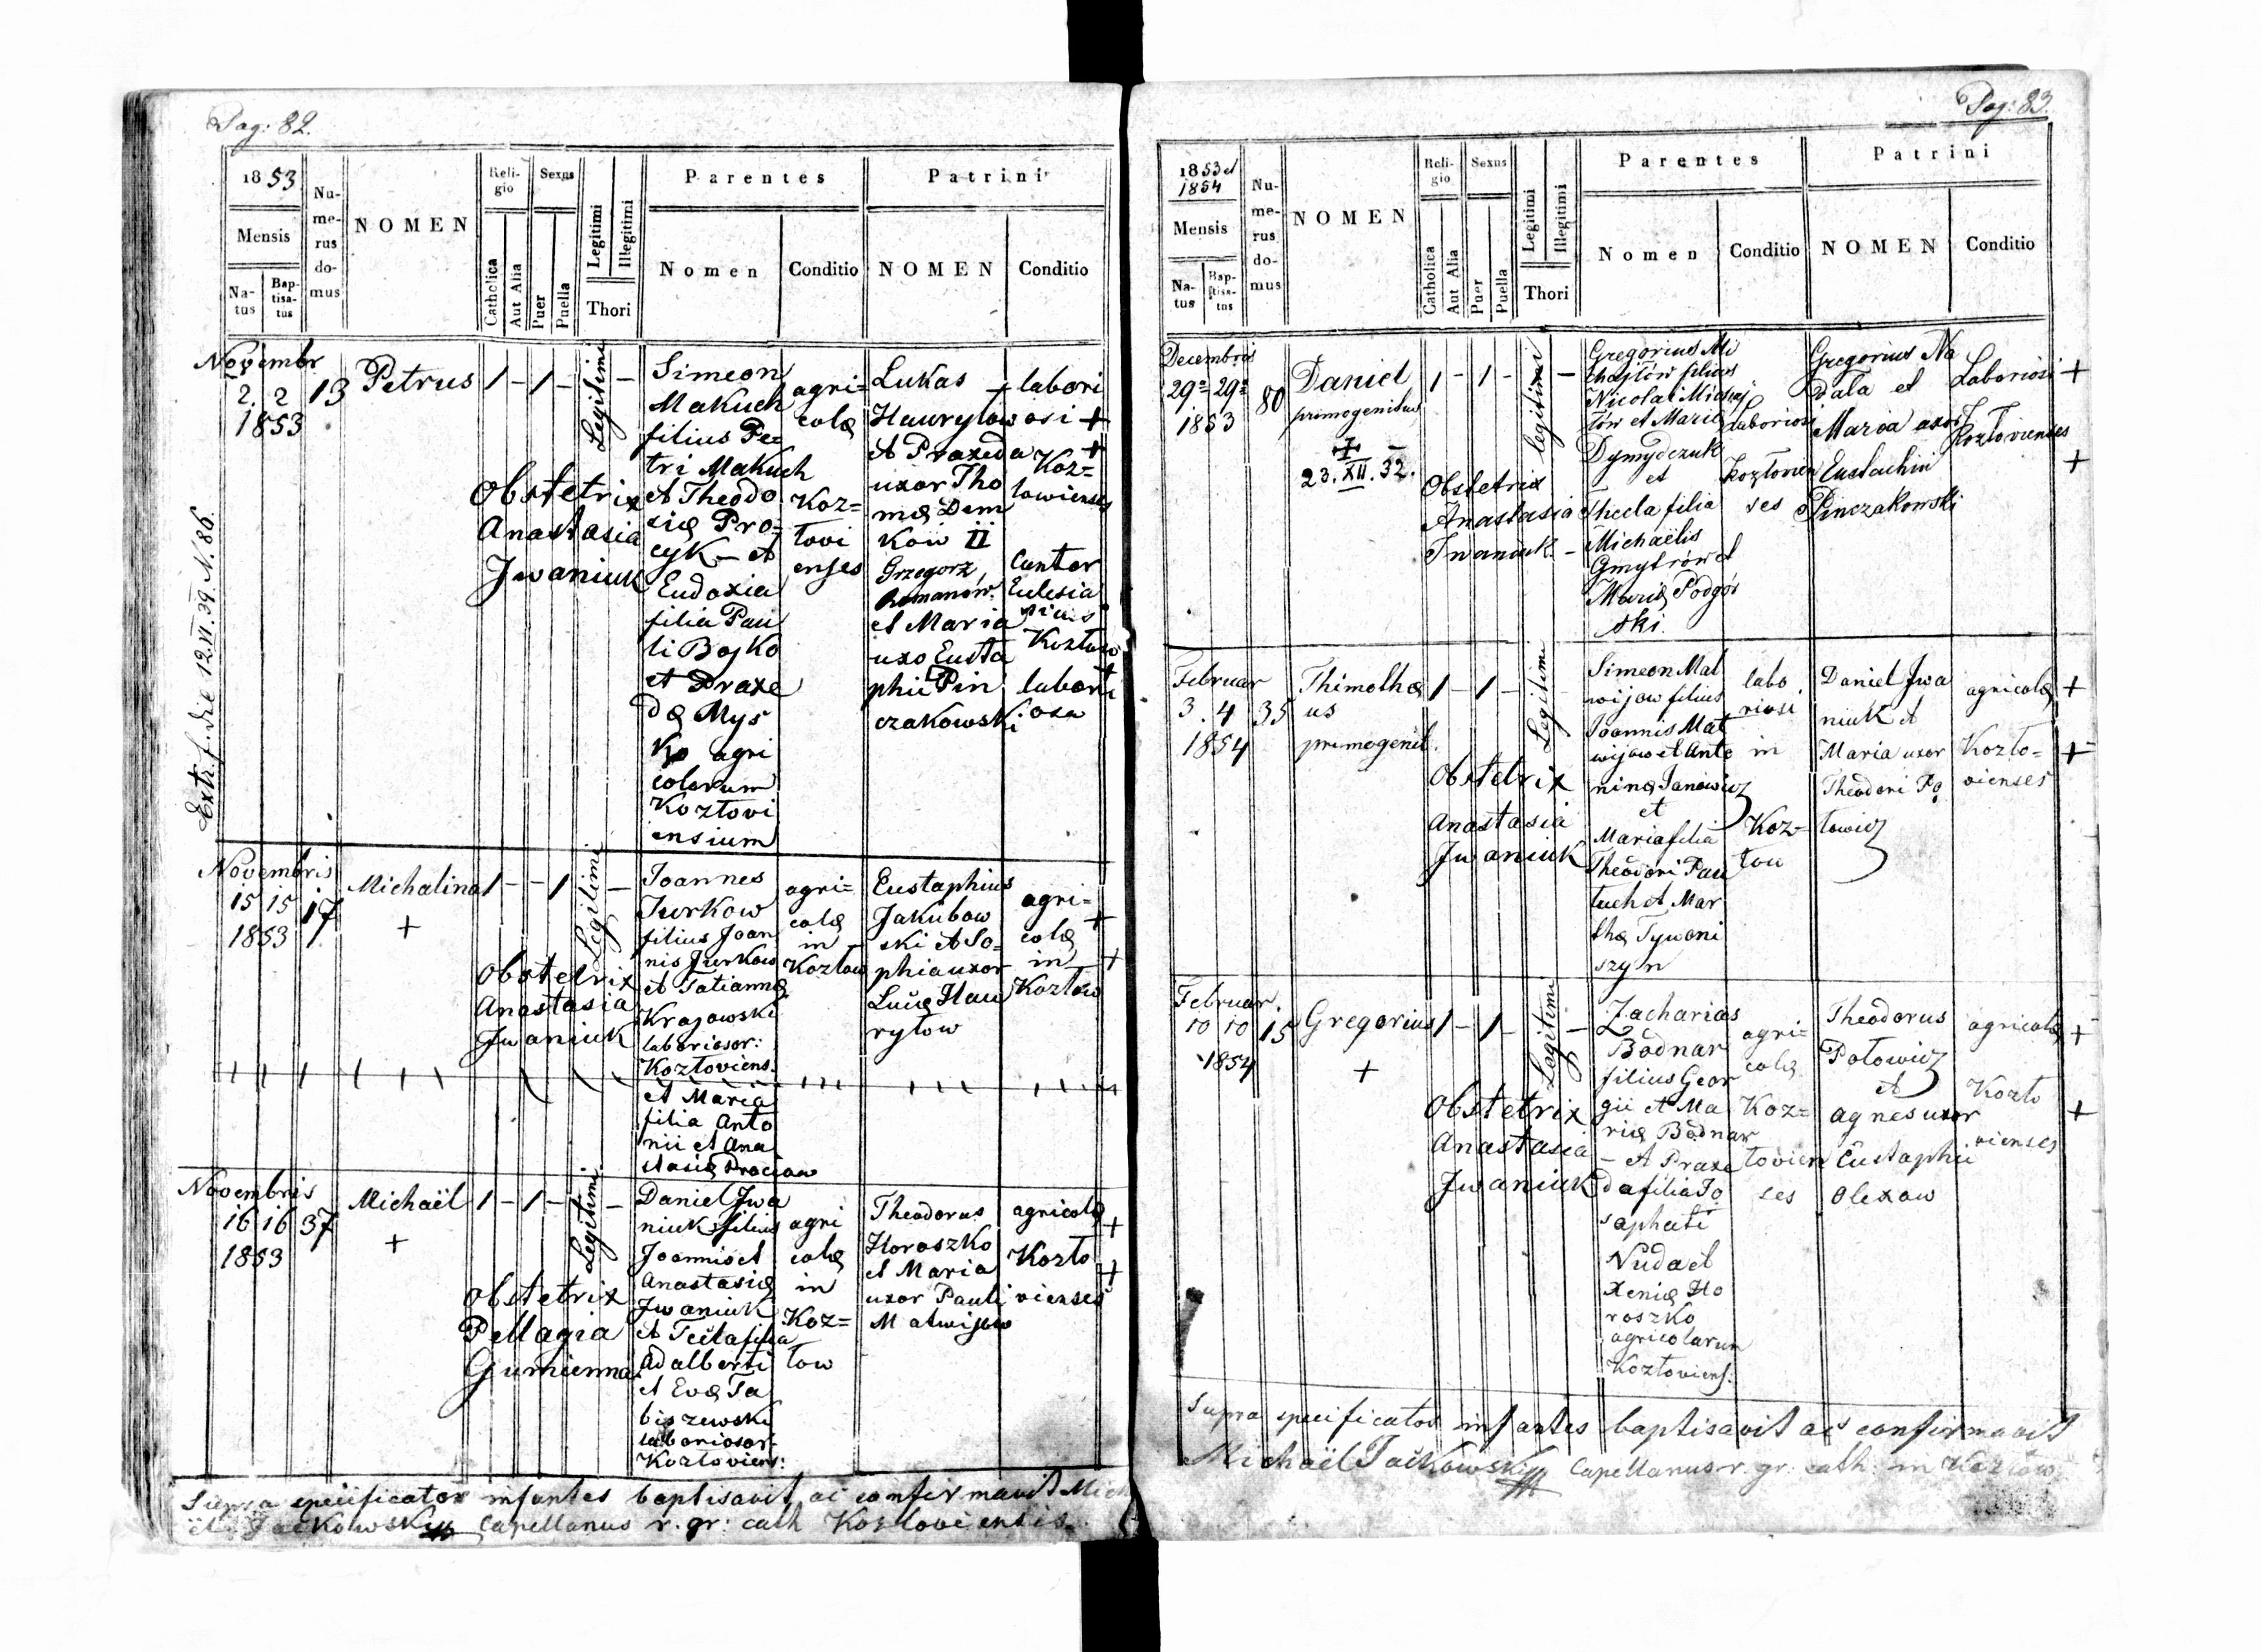 Pag: 82.
1853
Mensis
Na-
tus
Bap-
tisa-
tus
Nu-
me-
rus
do-
mus
NOMEN
Reli-
gio
Catholica
Aut Alia
Sexus
Puer
Puella
Legitimi
Illegitimi
Thori
Parentes
Nomen
Conditio
Patrini
NOMEN
Conditio
Novembr
2. 2
1853
13
Petrus
1 - 1 -
Legitimi
-
Obstetrix
Anastasia
Jwaniuk
Simeon
Makuch
filius Pe=
tri Makuch
et Theodo
siæ Pro=
cyk - et
Eudoxia
filia Pau
li Bojko
et Praxe
dæ Mys
ko agri
colarum
Kozłovi
ensium
agri=
colæ
Koz=
łovi
enses
Lukas
Hawryłow
et Praxeda
uxor Tho
mæ Dem
ków II
Grzegorz
Romanów
et Maria
uxo Eusta
phii Pin
czakowski
+ labori
osi +
+
Koz=
łowienses
Cantor
Eclesia
Kozłow
labori
osa
Extr. f. die 12.VI.39. N. 86.
Novembris
15 15
1853
17
Michalina
+
1 - - 1
Legitimi
-
Obstetrix
Anastasia
Jwaniuk
Joannes
Jurkow
filius Joan
nis Jurkow
et Tatiannæ
Krajowski
laboriosor:
Kozłoviens:
et Maria
filia Anto
nii et Ana
stasiæ Prociow
agri=
colæ
in
Kozłow
Eustaphius
Jakubow
ski et So=
phia uxor
Lucæ Haw
ryłow
agri=
colæ
in
Kozłow
+
+
Novembris
16 16
1853
37
Michaël
+
1 - 1 -
Legitimi
-
Obstetrix
Pellagia
Gumienna
Daniel Jwa
niuk filius
Joannis et
Anastasiæ
Jwaniuk
et Tecla filia
Adalberti
et Evæ Ta
biszewski
laboriosor.
Kozłoviens:
agri
colæ
in
Koz=
łow
Theodorus
Horoszko
et Maria
uxor Pauli
Matwijow
agricolæ
Kozło
vienses
+
+
Supra specificatos infantes baptisavit ac confirmavit Mich
aël Jackowski Capellanus r. gr: cath Kozloviensis.
Pag: 83.
1853 et
1854
Mensis
Na-
tus
Bap-
tisa-
tus
Nu-
me-
rus
do-
mus
NOMEN
Reli-
gio
Catholica
Aut Alia
Sexus
Puer
Puella
Legitimi
Illegitimi
Thori
Parentes
Nomen
Conditio
Patrini
NOMEN
Conditio
Decembris
29ª 29ª
1853
80
Daniel
primogenitus
+
23. XII. 32.
1 - 1 -
legitimi
-
Obstetrix
Anastasia
Iwaniuk -
Gregorius Mi
chajłów filius
Nicolai Michaj
łów et Mariæ
Dymydczuk
et
Thecla filia
Michaëlis
Gmytrów et
Mariæ Podgór
ski.
laboriosi
Kozłovien
ses
Gregorius Na
dala et
Maria uxor
Eustachii
Pinczakowski
Laboriosi
Kozłovienses
+
+
Februar
3. 4
1854
35
Thimothæ
us
primogenit.
1 - 1 -
Legitimi
Obstetrix
Anastasia
Jwaniuk
Simeon Mat
wijow filius
Joannis Mat
wijow et Anto
ninæ Janowicz
et
Maria filia
Theodori Paw
luch et Mar
thæ Tywoni
szyn
labo
riosi
in
Koz=
łow
Daniel Jwa
niuk et
Maria uxor
Theodori Po
łowicz
agricolæ
Kozło-
vienses
+
+
Februar.
10 10
1854
15
Gregorius
+
1 - 1 -
Legitimi
-
Obstetrix
Anastasia
Jwaniuk
Zacharias
Bodnar
filius Geor
gii et Ma
riæ Bodnar
- et Praxe
da filia Jo
saphati
Nuda et
Xeniæ Ho
roszko
agricolarum
Kozłoviens:
agri=
colæ
Koz=
łovien
ses
Theodorus
Połowicz
et
Agnes uxor
Eustaphii
Olexow
agricolæ
Kozło
vienses
+
+
Supra specificatos infantes baptisavit ac confirmavit
Michaël Jackowski Capellanus r. gr: cath: in Kozłow